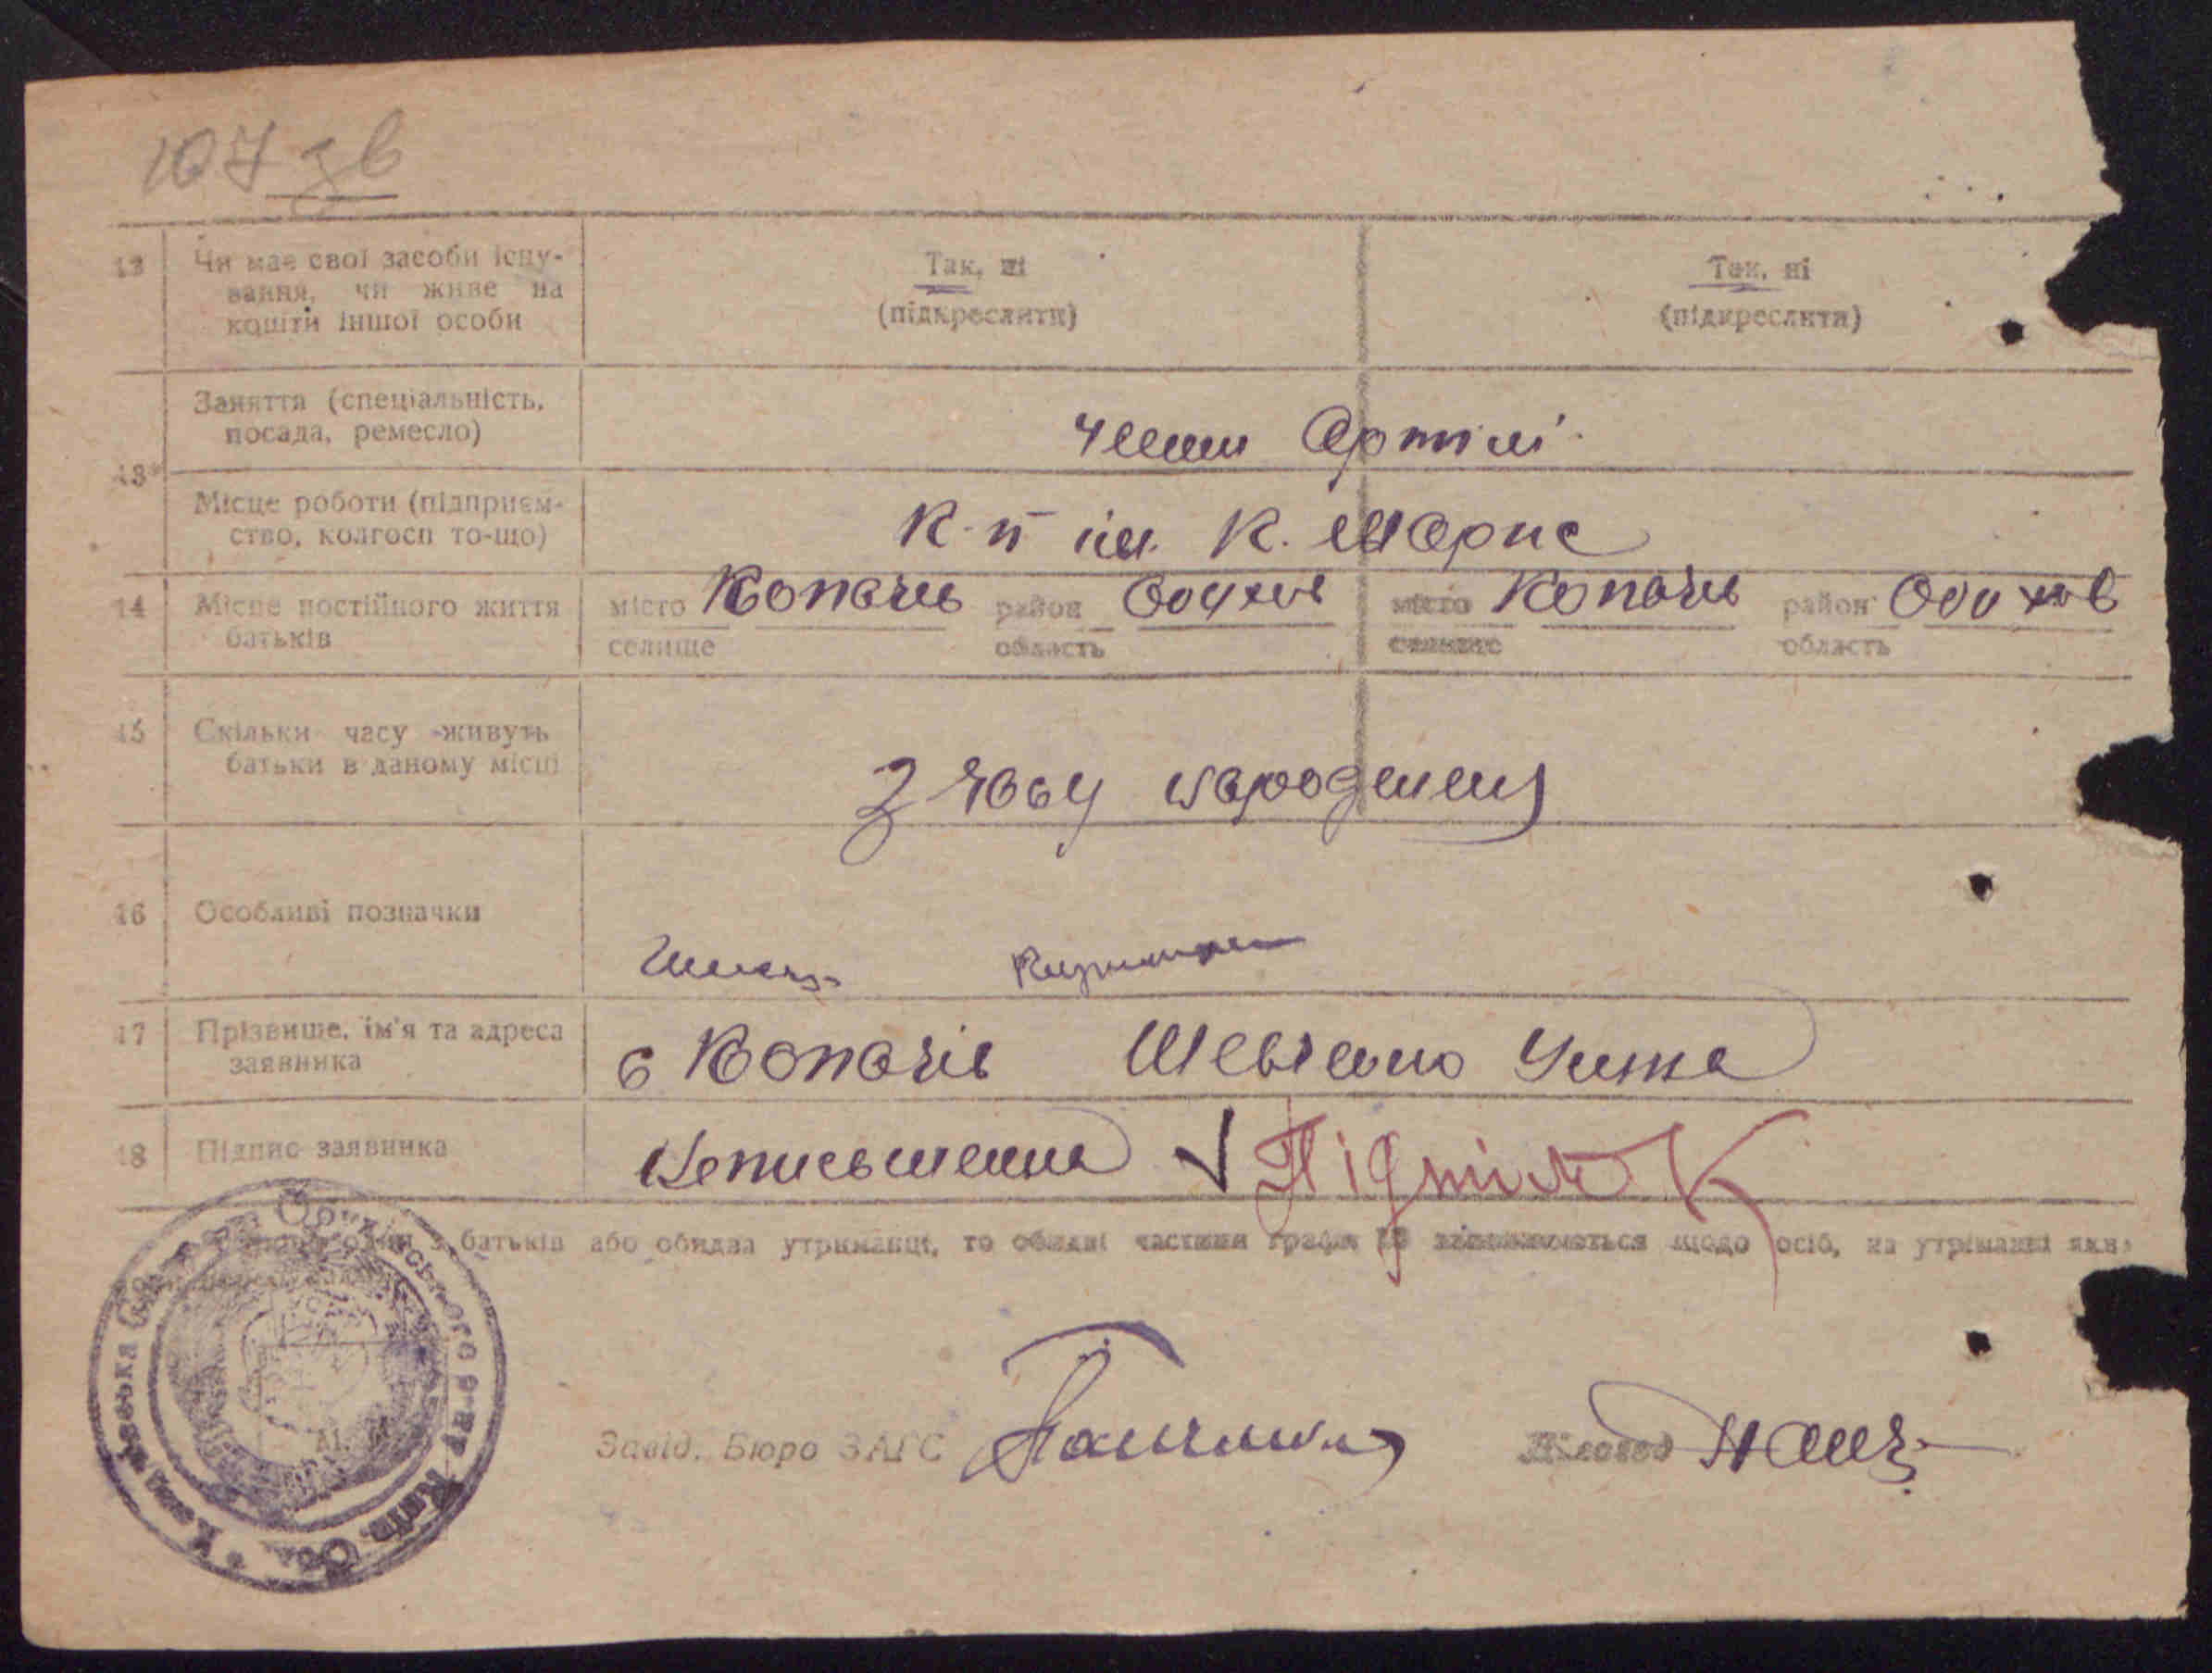 107 зв
12 Чи має свої засоби існу-
вання, чи живе на
кошти іншої особи
Так, ні
(підкреслити)
Так, ні
(підкреслити)
13*
Заняття (спеціальність,
посада, ремесло)
члени Артілі
Місце роботи (підприєм-
ство, колгосп то-що)
К-п ім. К. Маркс
14 Місце постійного життя
батьків
місто Копачів район Обухів
селище область
місто Копачів район Обухів
селище область
15 Скільки часу живуть
батьки в даному місці
З часу народження
16 Особливі позначки
17 Прізвище, ім'я та адреса
заявника
с Копачів Шевченко
18 Підпис заявника
Неписьменна Підтілок
батьків або обидва утриманці, то обидві частини графи 13 заповнюються щодо осіб, на утриманні яких
Завід. Бюро ЗАГС
Діловод